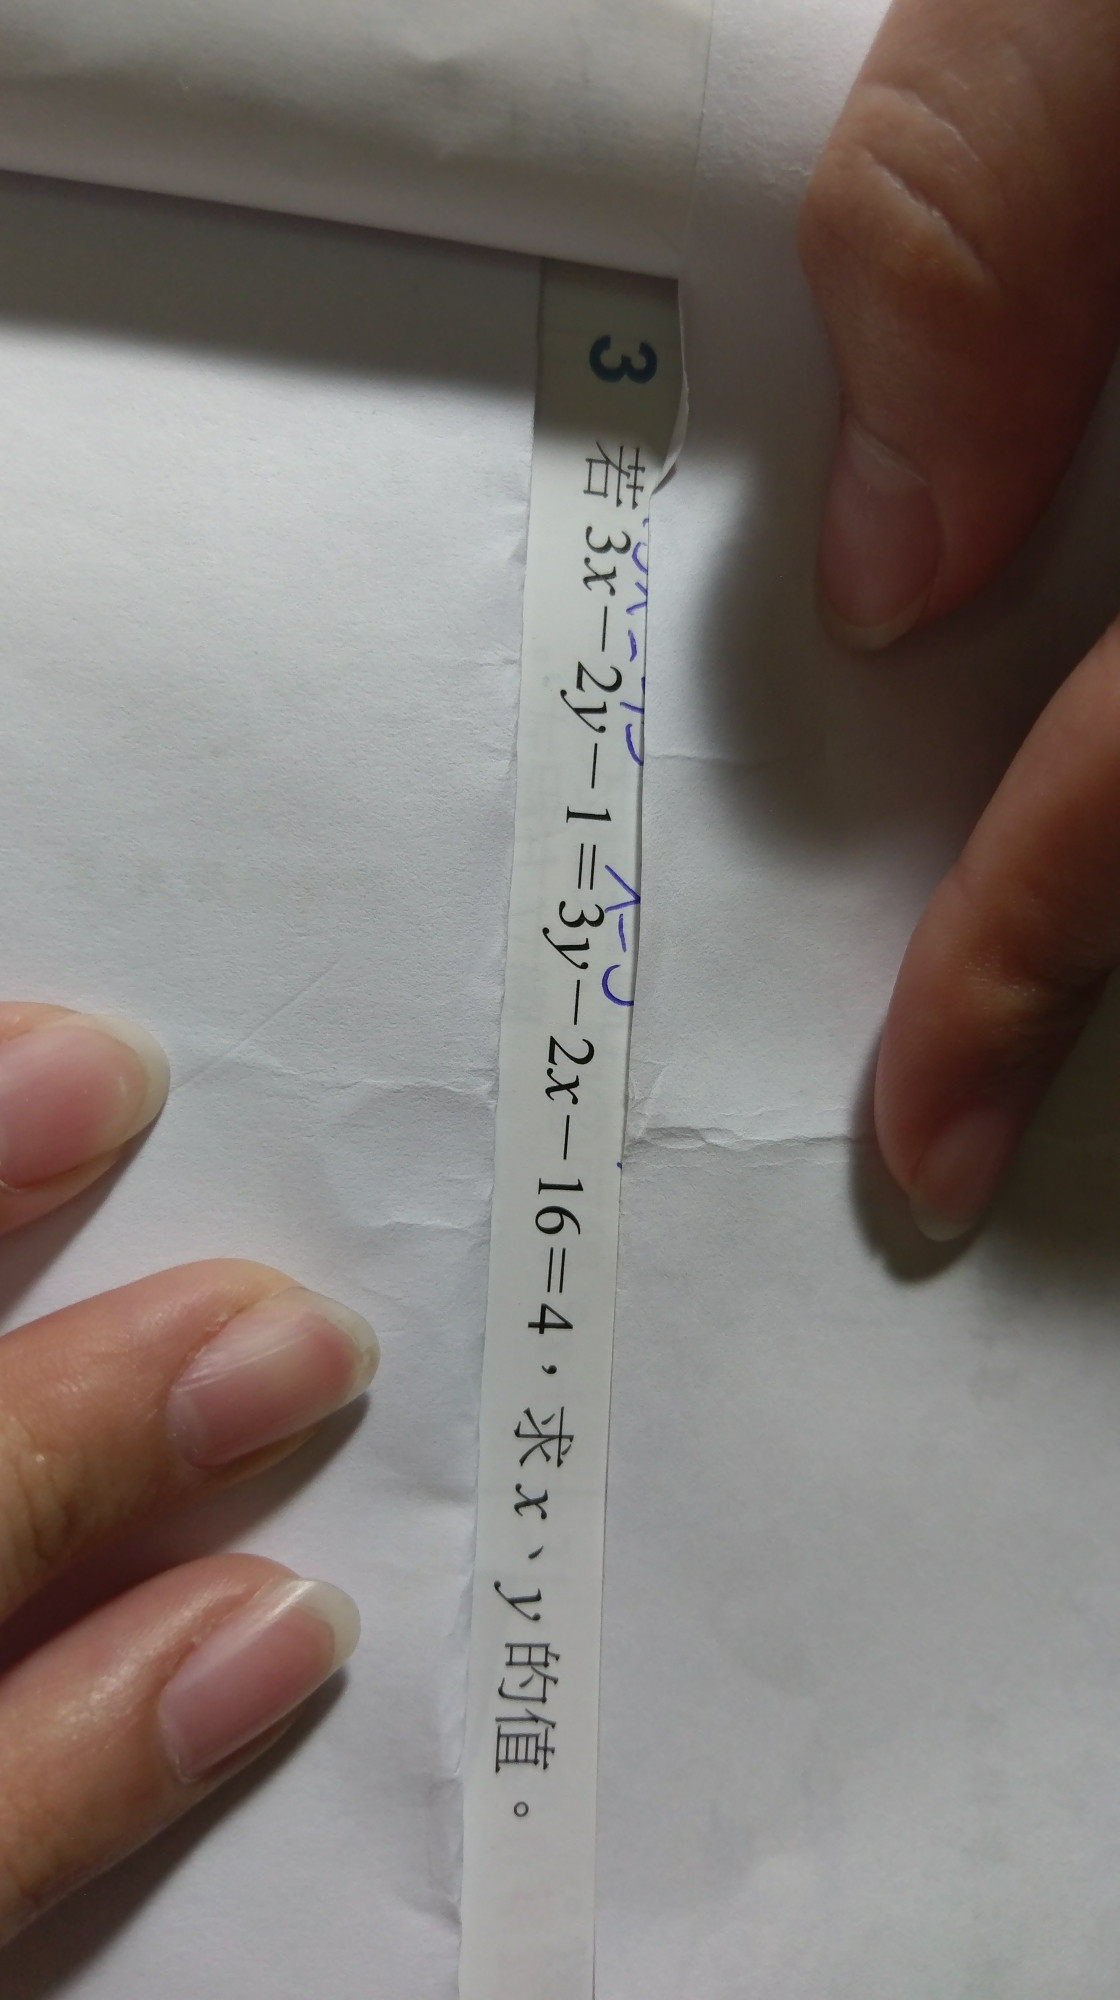 3 若3x－2y－1＝3y－2x－16＝4，求x、y的值。